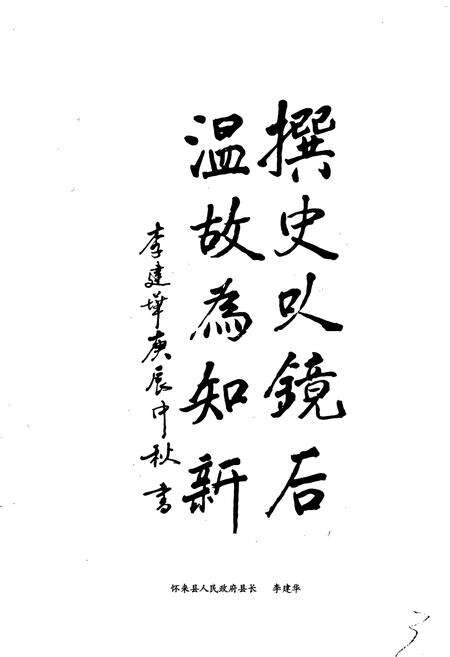 撰史以鏡后
温故為知新
李建華庚辰中秋書
怀来县人民政府县长 李建华